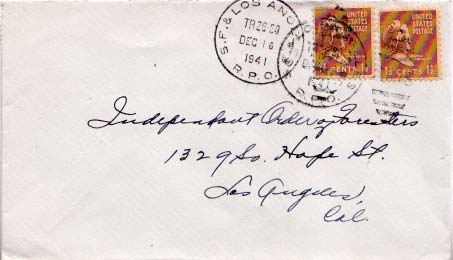 S.F. & LOS ANG
TR 26 SD
DEC 16
1941
R.P.O.
UNITED STATES POSTAGE
1½ CENTS 1½
UNITED STATES POSTAGE
1½ CENTS 1½
Independant Order of Foresters
1329 So. Hope St.
Los Angeles,
Cal.